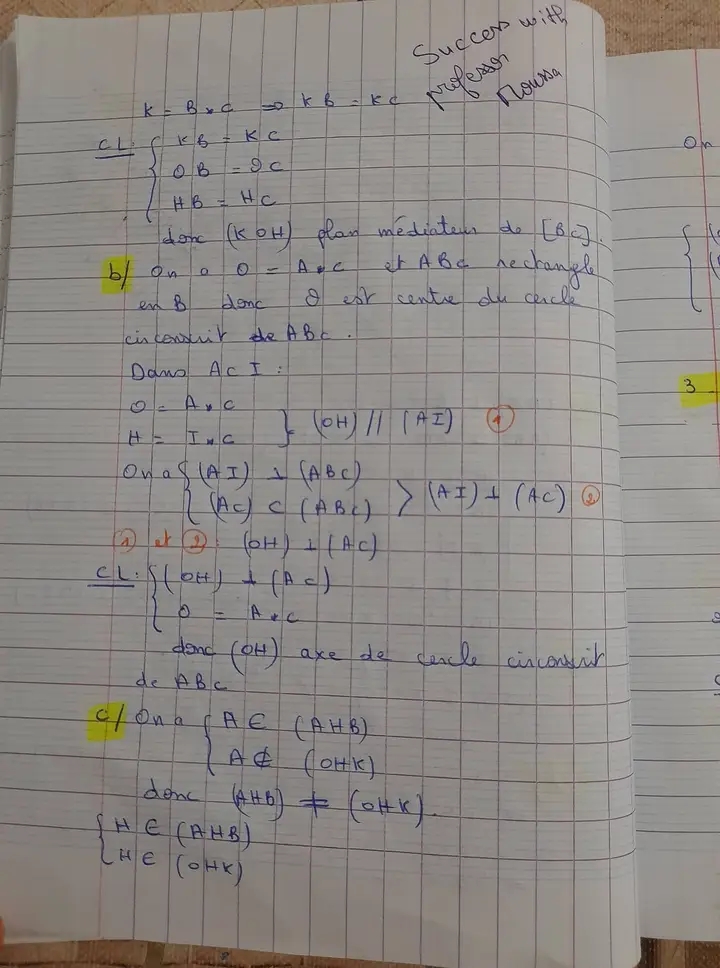 Success with
professor
Moussa
K = B * C => KB = KC
CL: { KB = KC
OB = OC
HB = HC
donc (KOH) plan médiateur de [BC].
b/ On a O = A * C et ABC rectangle
en B donc O est centre du cercle
circonscrit de ABC.
Dans ACI :
O = A * C
H = I * C } (OH) // (AI) ①
On a { (AI) ⊥ (ABC)
(AC) ⊂ (ABC) > (AI) ⊥ (AC) ②
① et ② : (OH) ⊥ (AC)
CL: { (OH) ⊥ (AC)
O = A * C
donc (OH) axe de cercle circonscrit
de ABC
c/ On a { A ∈ (AHB)
A ∉ (OHK)
donc (AHB) ≠ (OHK).
{ H ∈ (AHB)
H ∈ (OHK)
On
3